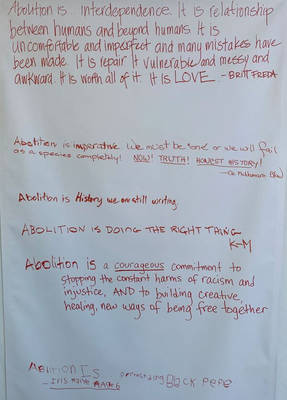 Abolition is... interdependence. It is relationship
between humans and beyond humans. It is
uncomfortable and imperfect and many mistakes have
been made. It is repair. It vulnerable and messy and
awkward. It is worth all of it. It is LOVE - BRITT FREDA
Abolition is imperative. We must be one or we will fail
as a species completely! NOW! TRUTH! HONEST HISTORY!
Abolition is History we are still writing.
ABOLITION IS DOING THE RIGHT THING
K-M
Abolition is a courageous commitment to
stopping the constant harms of racism and
injustice, AND to building creative,
healing, new ways of being free together
ABITION IS Black PePe